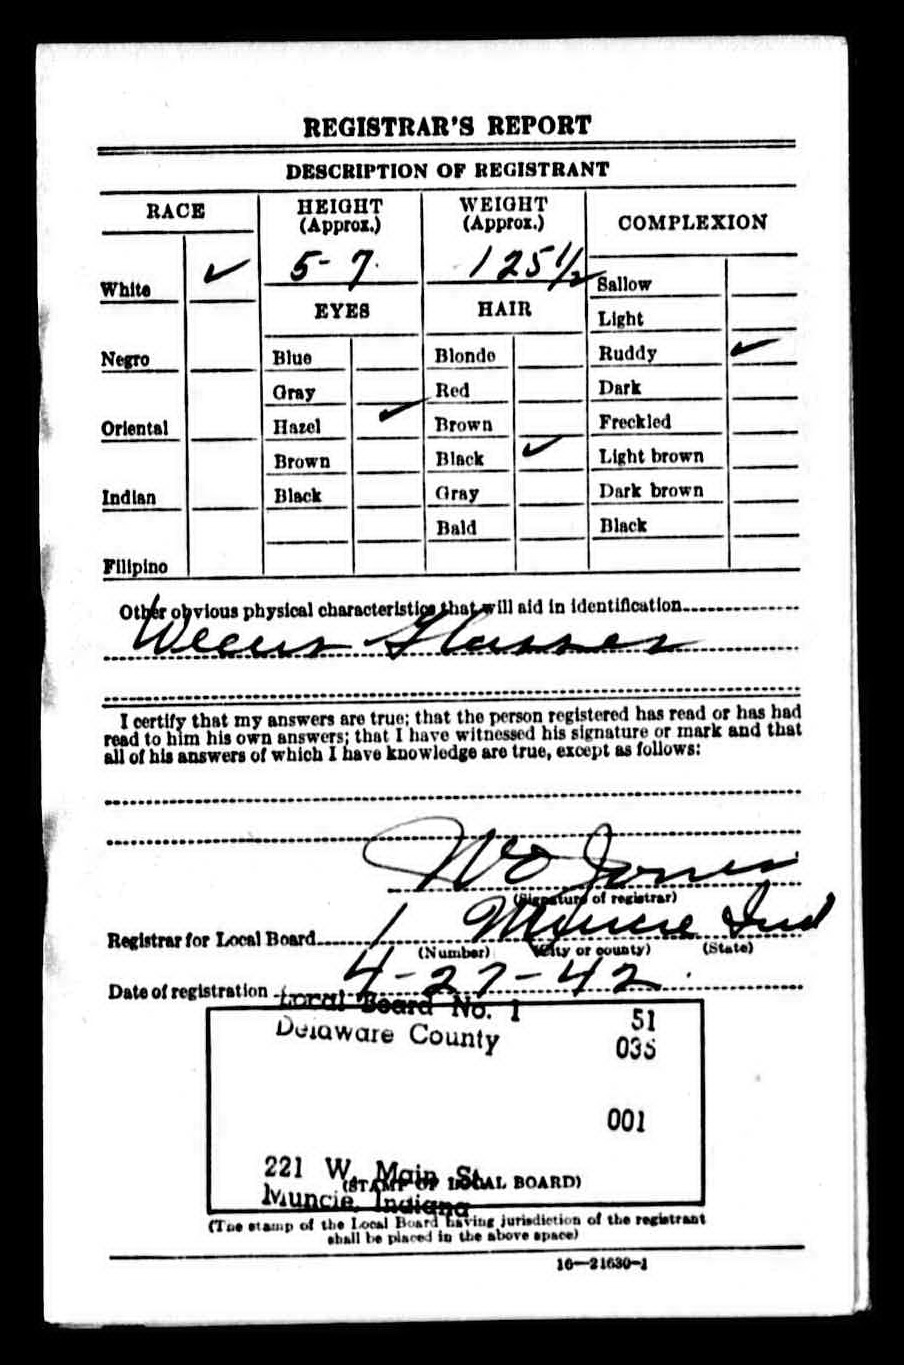 REGISTRAR'S REPORT
DESCRIPTION OF REGISTRANT
RACE
HEIGHT
(Approx.)
WEIGHT
(Approx.)
COMPLEXION
White ✓
5-7
125 1/2
Sallow
EYES
HAIR
Light
Negro
Blue
Blonde
Ruddy ✓
Gray
Red
Dark
Oriental
Hazel ✓
Brown
Freckled
Brown
Black ✓
Light brown
Indian
Black
Gray
Dark brown
Bald
Black
Filipino
Other obvious physical characteristics that will aid in identification
Wears Glasses
I certify that my answers are true; that the person registered has read or has had
read to him his own answers; that I have witnessed his signature or mark and that
all of his answers of which I have knowledge are true, except as follows:
WO Jones
(Signature of registrar)
Registrar for Local Board 1 Muncie Ind
(Number) (City or county) (State)
Date of registration 4-27-42
Local Board No. 1 51
Delaware County 035
001
221 W. Main St.
(STAMP OF LOCAL BOARD)
Muncie, Indiana
(The stamp of the Local Board having jurisdiction of the registrant
shall be placed in the above space)
16—21630-1